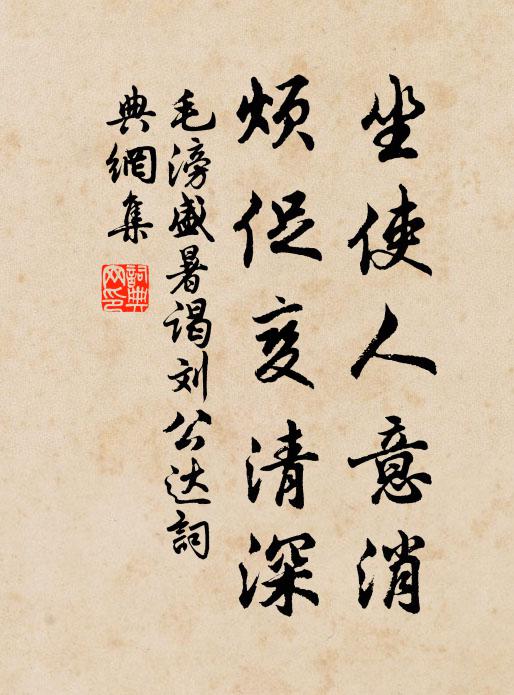 坐使人意消
烦促变清深
毛滂盛暑谒刘公达词
典網集
詞典
网印